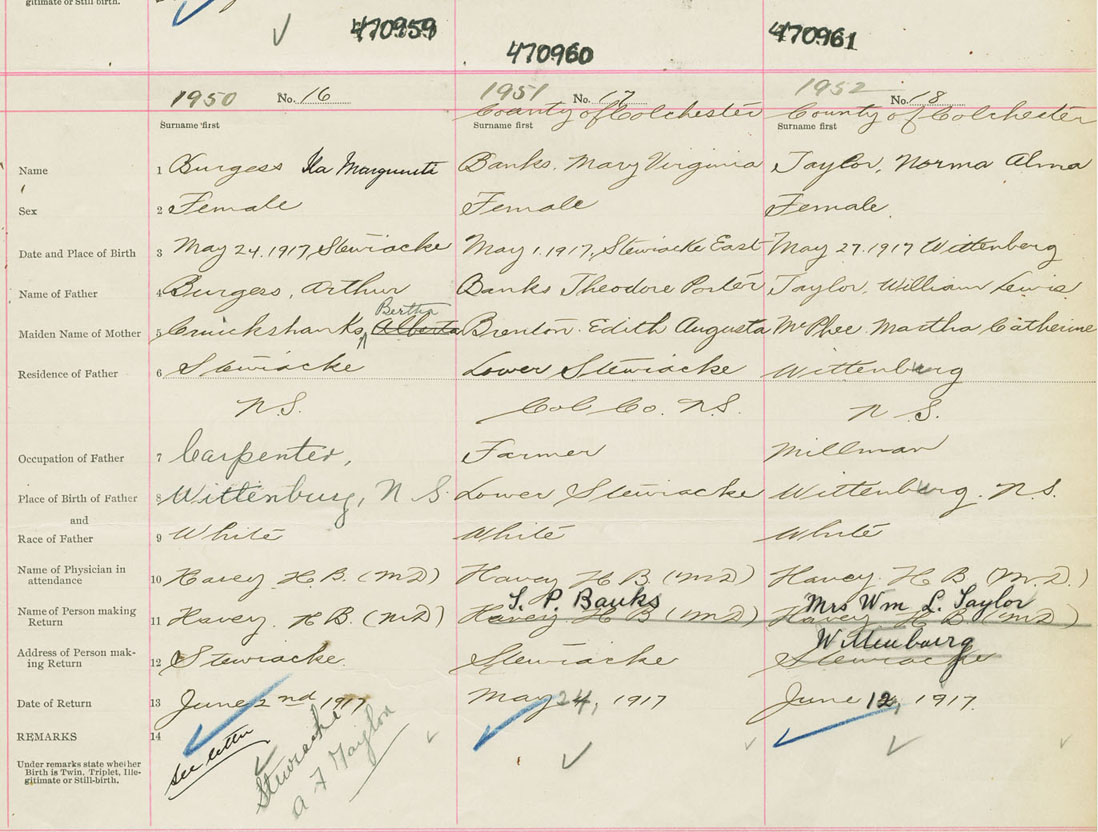 gitimate or Still birth.
470959 470960 470961
1950 No. 16 1951 No. 17 1952 No. 18
County of Colchester County of Colchester
Surname first Surname first Surname first
Name 1 Burgess Ila Marguerite Banks, Mary Virginia Taylor, Norma Alma
Sex 2 Female Female Female.
Date and Place of Birth 3 May 24, 1917, Stewiacke May 1, 1917, Stewiacke East May 27, 1917 Wittenberg
Name of Father 4 Burgess, Arthur Banks Theodore Porter Taylor, William Lewis
Bertha
Maiden Name of Mother 5 Cruickshanks, Alberta Brenton Edith Augusta McPhee Martha Catherine
Residence of Father 6 Stewiacke Lower Stewiacke Wittenburg
N S. Col. Co. N.S. N S.
Occupation of Father 7 Carpenter, Farmer Millman
Place of Birth of Father 8 Wittenburg, N S. Lower Stewiacke Wittenburg. N S.
and
Race of Father 9 White White White
Name of Physician in
attendance 10 Havey H B. (MD) Havey H B (MD) Havey. H B (M.D.)
T. P. Banks Mrs Wm L. Taylor
Name of Person making
Return 11 Havey. H B. (MD) Havey H B (MD) Havey. H B (MD)
Wittenburg
Address of Person mak-
ing Return 12 Stewiacke. Stewiacke Stewiacke
Date of Return 13 June 2nd 1917 May 24, 1917 June 12, 1917.
REMARKS 14
see letter
Stewiacke
Under remarks state whether
Birth is Twin, Triplet, Ille-
gitimate or Still-birth.